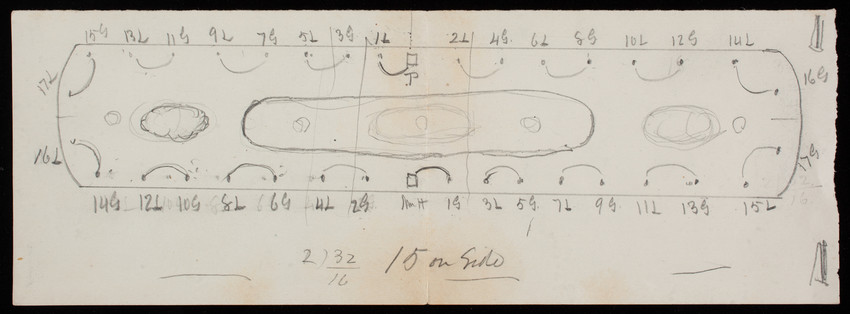 15G 13L 11G 9L 7G 5L 3G 1L 2L 4G. 6L 8G 10L 12G 14L
17L 16G
P
16L 17G
14G 12L 10G 8L 6G 4L 2G 1G 3L 5G. 7L 9G 11L 13G 15L
2)32 15 on Side
16